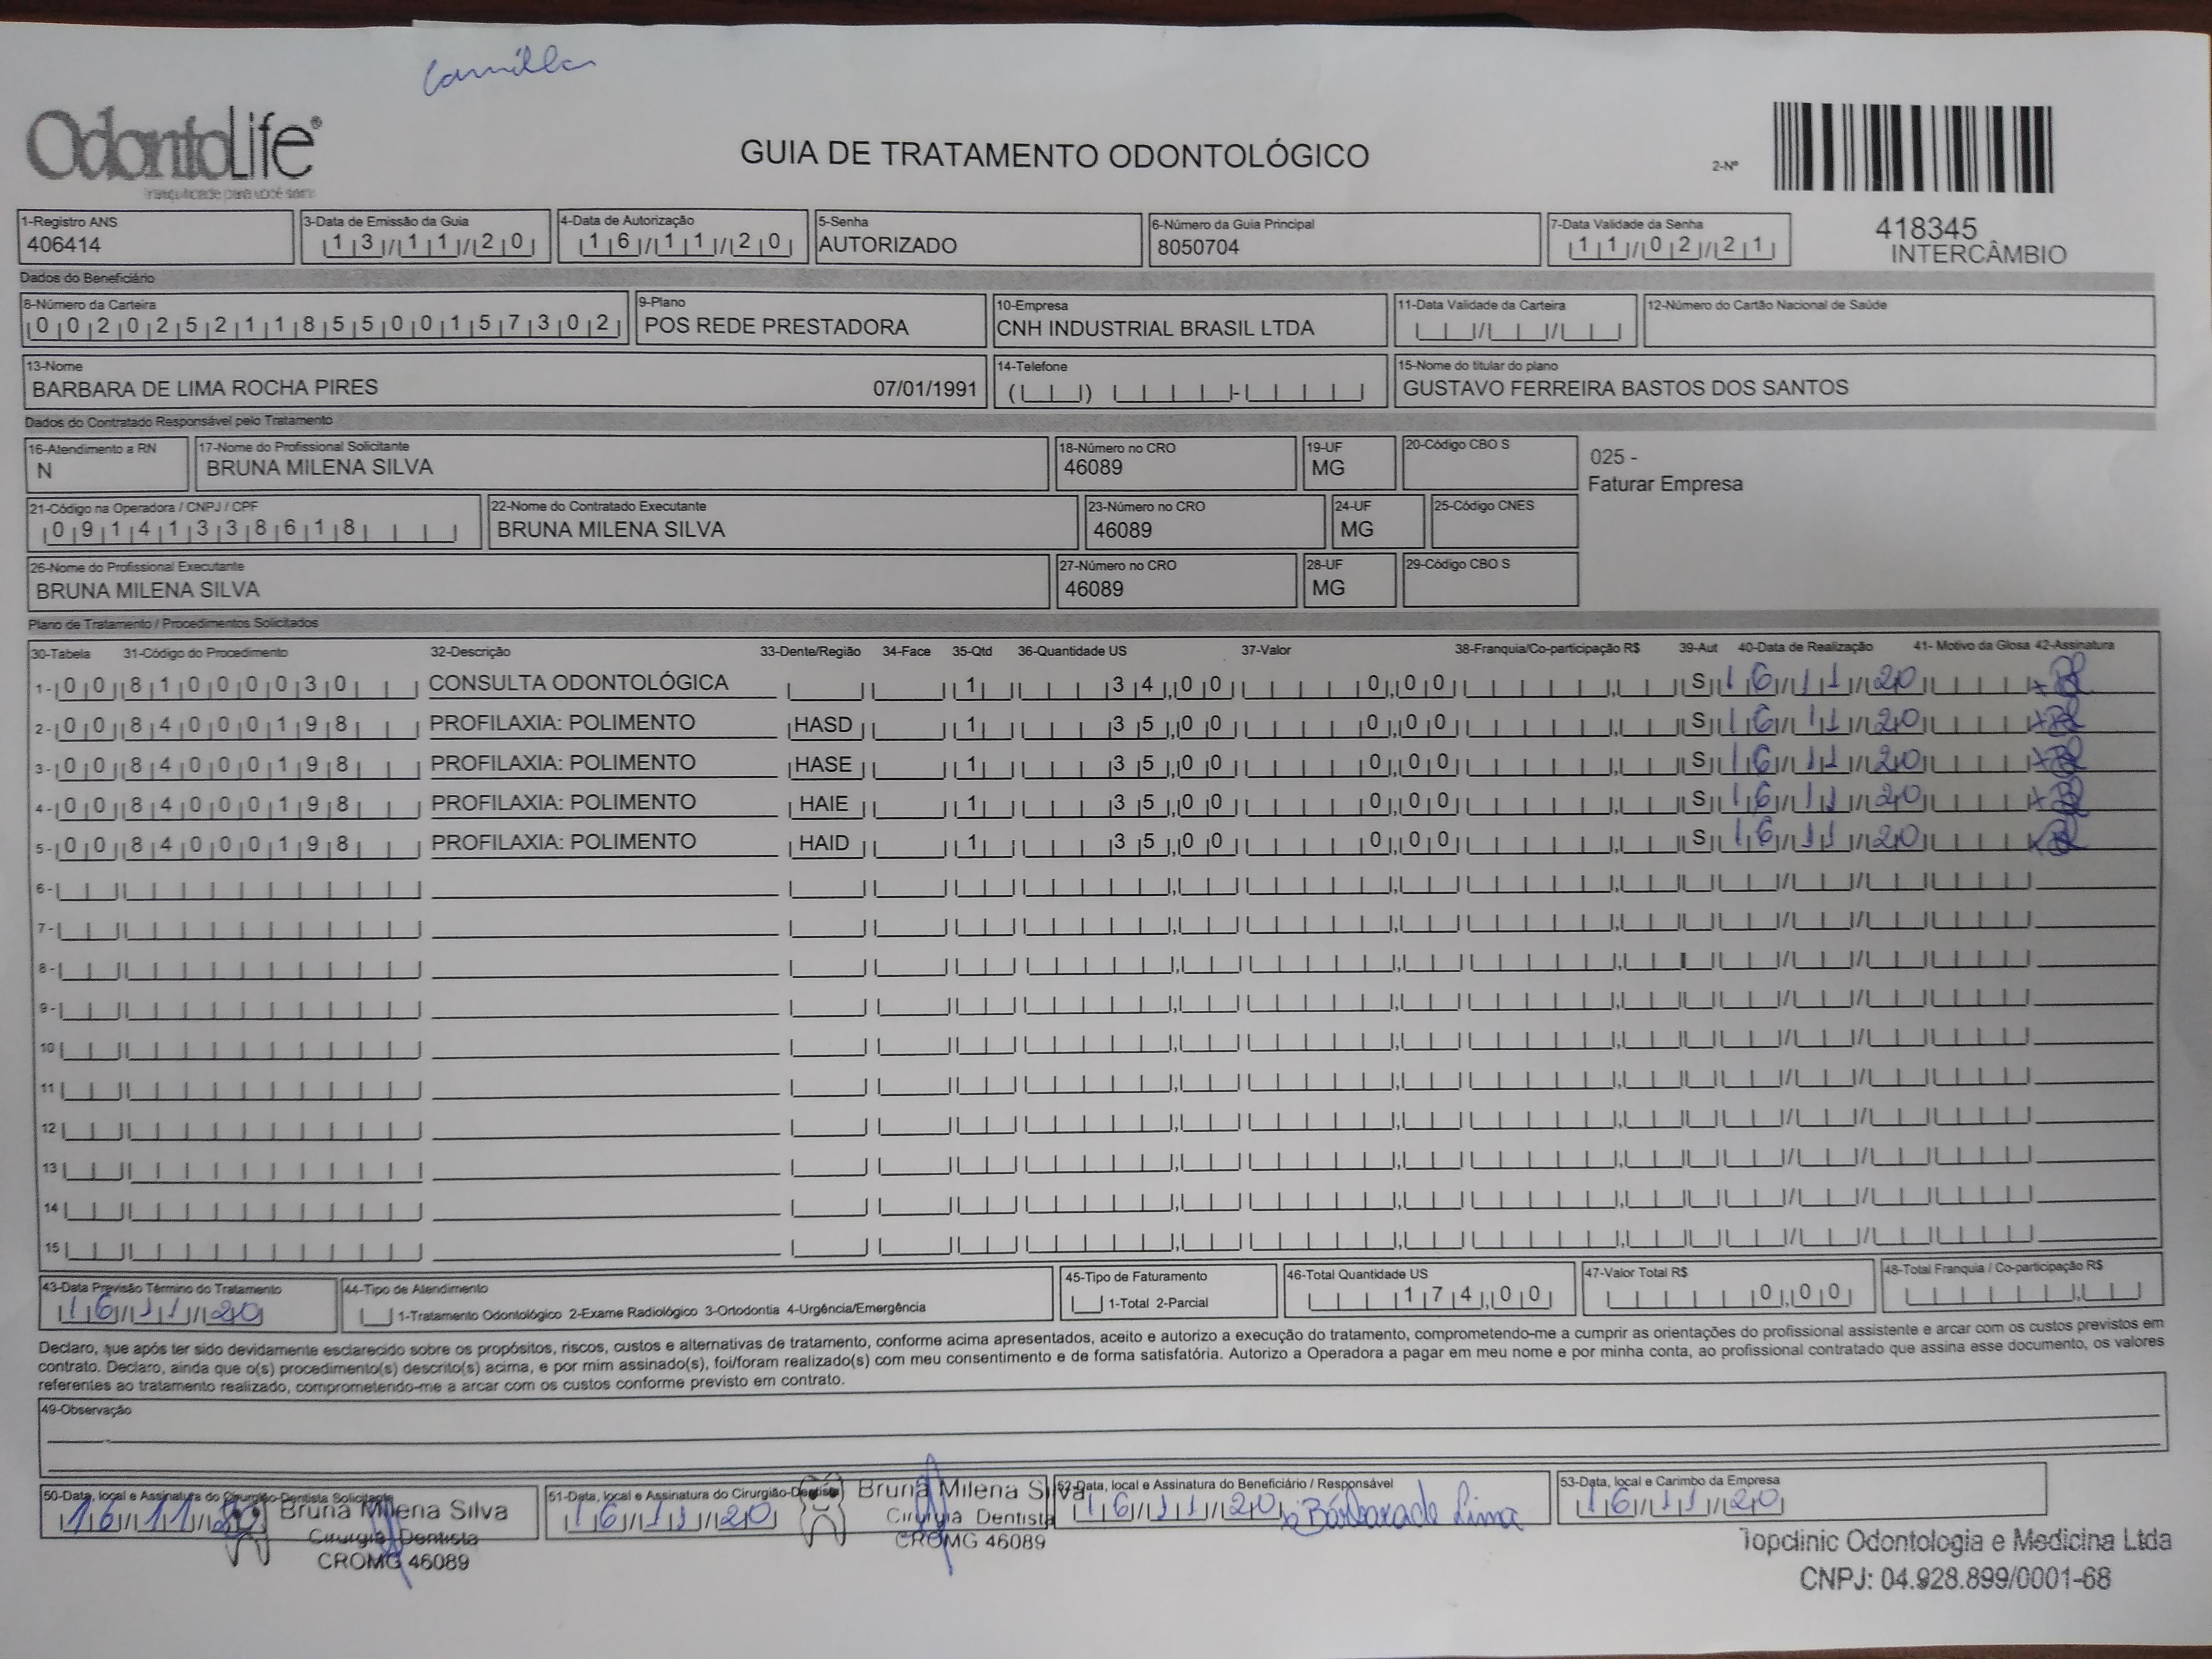 Camilla
OdontoLife®
Tranquilidade para você sorrir
GUIA DE TRATAMENTO ODONTOLÓGICO
2-Nº
418345
INTERCÂMBIO
1-Registro ANS
406414
3-Data de Emissão da Guia
13/11/20
4-Data de Autorização
16/11/20
5-Senha
AUTORIZADO
6-Número da Guia Principal
8050704
7-Data Validade da Senha
11/02/21
Dados do Beneficiário
8-Número da Carteira
00202521185500157302
9-Plano
POS REDE PRESTADORA
10-Empresa
CNH INDUSTRIAL BRASIL LTDA
11-Data Validade da Carteira
12-Número do Cartão Nacional de Saúde
13-Nome
BARBARA DE LIMA ROCHA PIRES 07/01/1991
14-Telefone
15-Nome do titular do plano
GUSTAVO FERREIRA BASTOS DOS SANTOS
Dados do Contratado Responsável pelo Tratamento
16-Atendimento a RN
N
17-Nome do Profissional Solicitante
BRUNA MILENA SILVA
18-Número no CRO
46089
19-UF
MG
20-Código CBO S
025 -
Faturar Empresa
21-Código na Operadora / CNPJ / CPF
09141338618
22-Nome do Contratado Executante
BRUNA MILENA SILVA
23-Número no CRO
46089
24-UF
MG
25-Código CNES
26-Nome do Profissional Executante
BRUNA MILENA SILVA
27-Número no CRO
46089
28-UF
MG
29-Código CBO S
Plano de Tratamento / Procedimentos Solicitados
30-Tabela 31-Código do Procedimento 32-Descrição 33-Dente/Região 34-Face 35-Qtd 36-Quantidade US 37-Valor 38-Franquia/Co-participação R$ 39-Aut 40-Data de Realização 41- Motivo da Glosa 42-Assinatura
1- 00 81000030 CONSULTA ODONTOLÓGICA 1 34,00 0,00 S 16/11/20
2- 00 84000198 PROFILAXIA: POLIMENTO HASD 1 35,00 0,00 S 16/11/20
3- 00 84000198 PROFILAXIA: POLIMENTO HASE 1 35,00 0,00 S 16/11/20
4- 00 84000198 PROFILAXIA: POLIMENTO HAIE 1 35,00 0,00 S 16/11/20
5- 00 84000198 PROFILAXIA: POLIMENTO HAID 1 35,00 0,00 S 16/11/20
6-
7-
8-
9-
10
11
12
13
14
15
43-Data Previsão Término do Tratamento
16/11/20
44-Tipo de Atendimento
1-Tratamento Odontológico 2-Exame Radiológico 3-Ortodontia 4-Urgência/Emergência
45-Tipo de Faturamento
1-Total 2-Parcial
46-Total Quantidade US
174,00
47-Valor Total R$
0,00
48-Total Franquia / Co-participação R$
Declaro, que após ter sido devidamente esclarecido sobre os propósitos, riscos, custos e alternativas de tratamento, conforme acima apresentados, aceito e autorizo a execução do tratamento, comprometendo-me a cumprir as orientações do profissional assistente e arcar com os custos previstos em
contrato. Declaro, ainda que o(s) procedimento(s) descrito(s) acima, e por mim assinado(s), foi/foram realizado(s) com meu consentimento e de forma satisfatória. Autorizo a Operadora a pagar em meu nome e por minha conta, ao profissional contratado que assina esse documento, os valores
referentes ao tratamento realizado, comprometendo-me a arcar com os custos conforme previsto em contrato.
49-Observação
50-Data, local e Assinatura do Cirurgião-Dentista Solicitante
16/11/20
Bruna Milena Silva
Cirurgiã Dentista
CROMG 46089
51-Data, local e Assinatura do Cirurgião-Dentista
16/11/20
Bruna Milena Silva
Cirurgiã Dentista
CROMG 46089
52-Data, local e Assinatura do Beneficiário / Responsável
16/11/20 x Bárbara de Lima
53-Data, local e Carimbo da Empresa
16/11/20
Topclinic Odontologia e Medicina Ltda
CNPJ: 04.928.899/0001-68